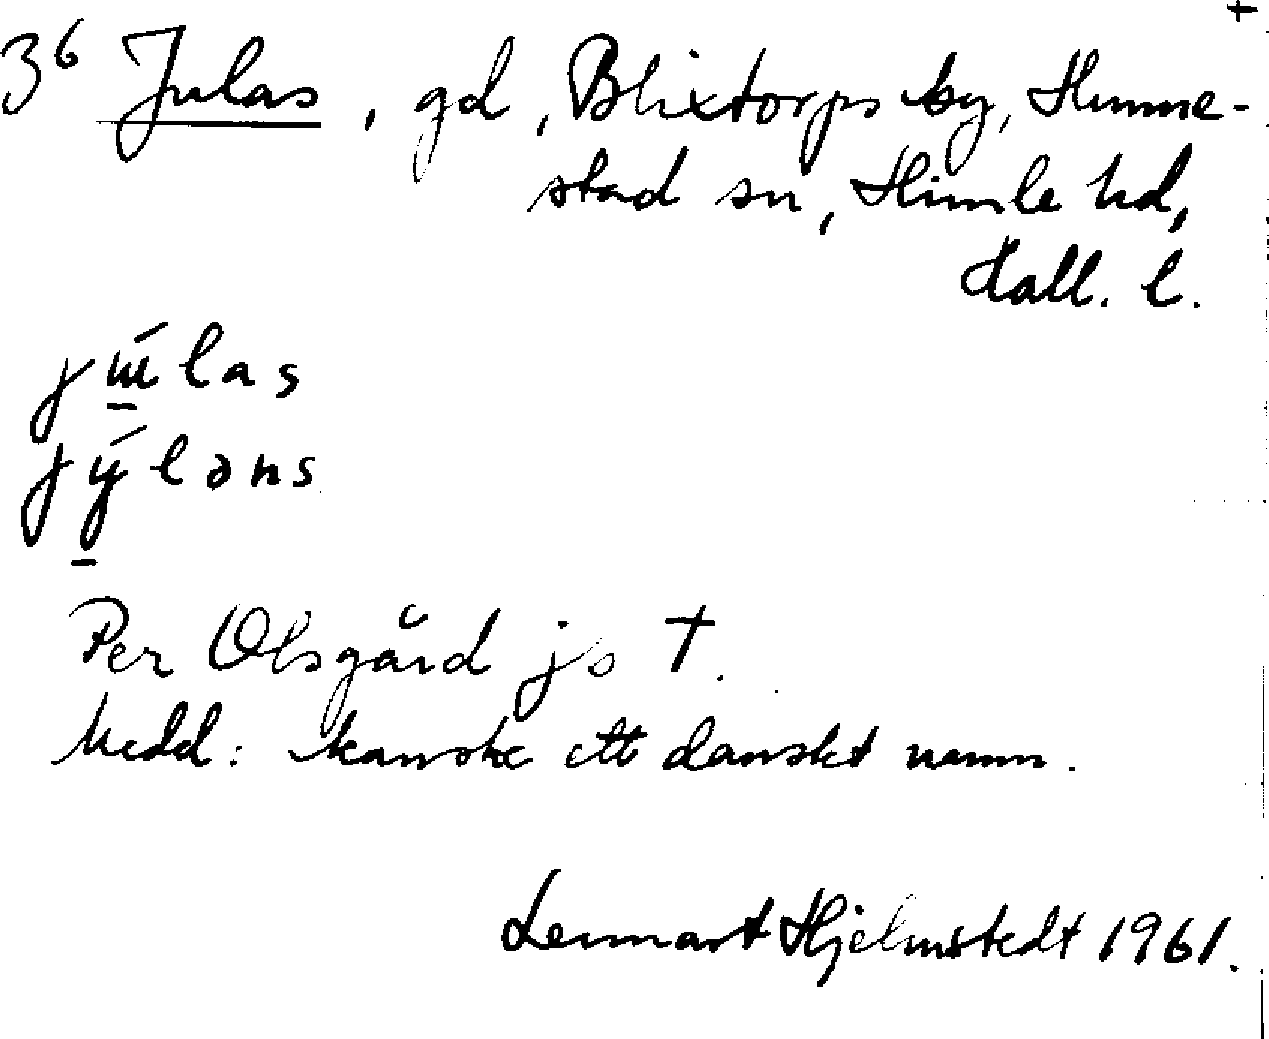 3⁶ Julas, gd, Blixtorps by, Hunne-
stad sn, Himle hd,
Hall. l.
jɯ́las
jýləns
Per Olsgård js †.
Medd: kanske ett danskt namn.
Lennart Hjelmstedt 1961.